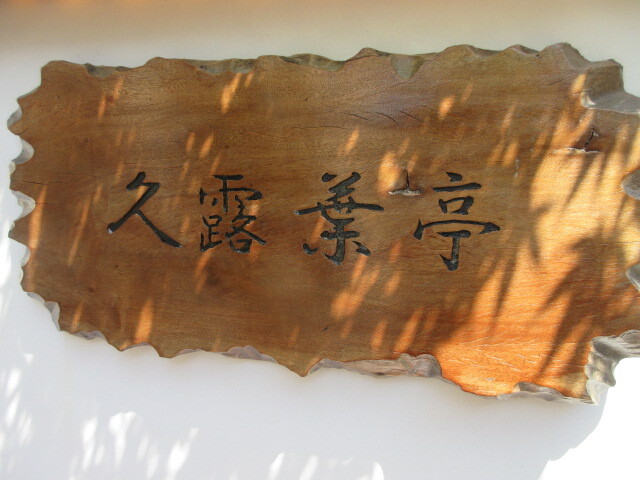 久露葉亭